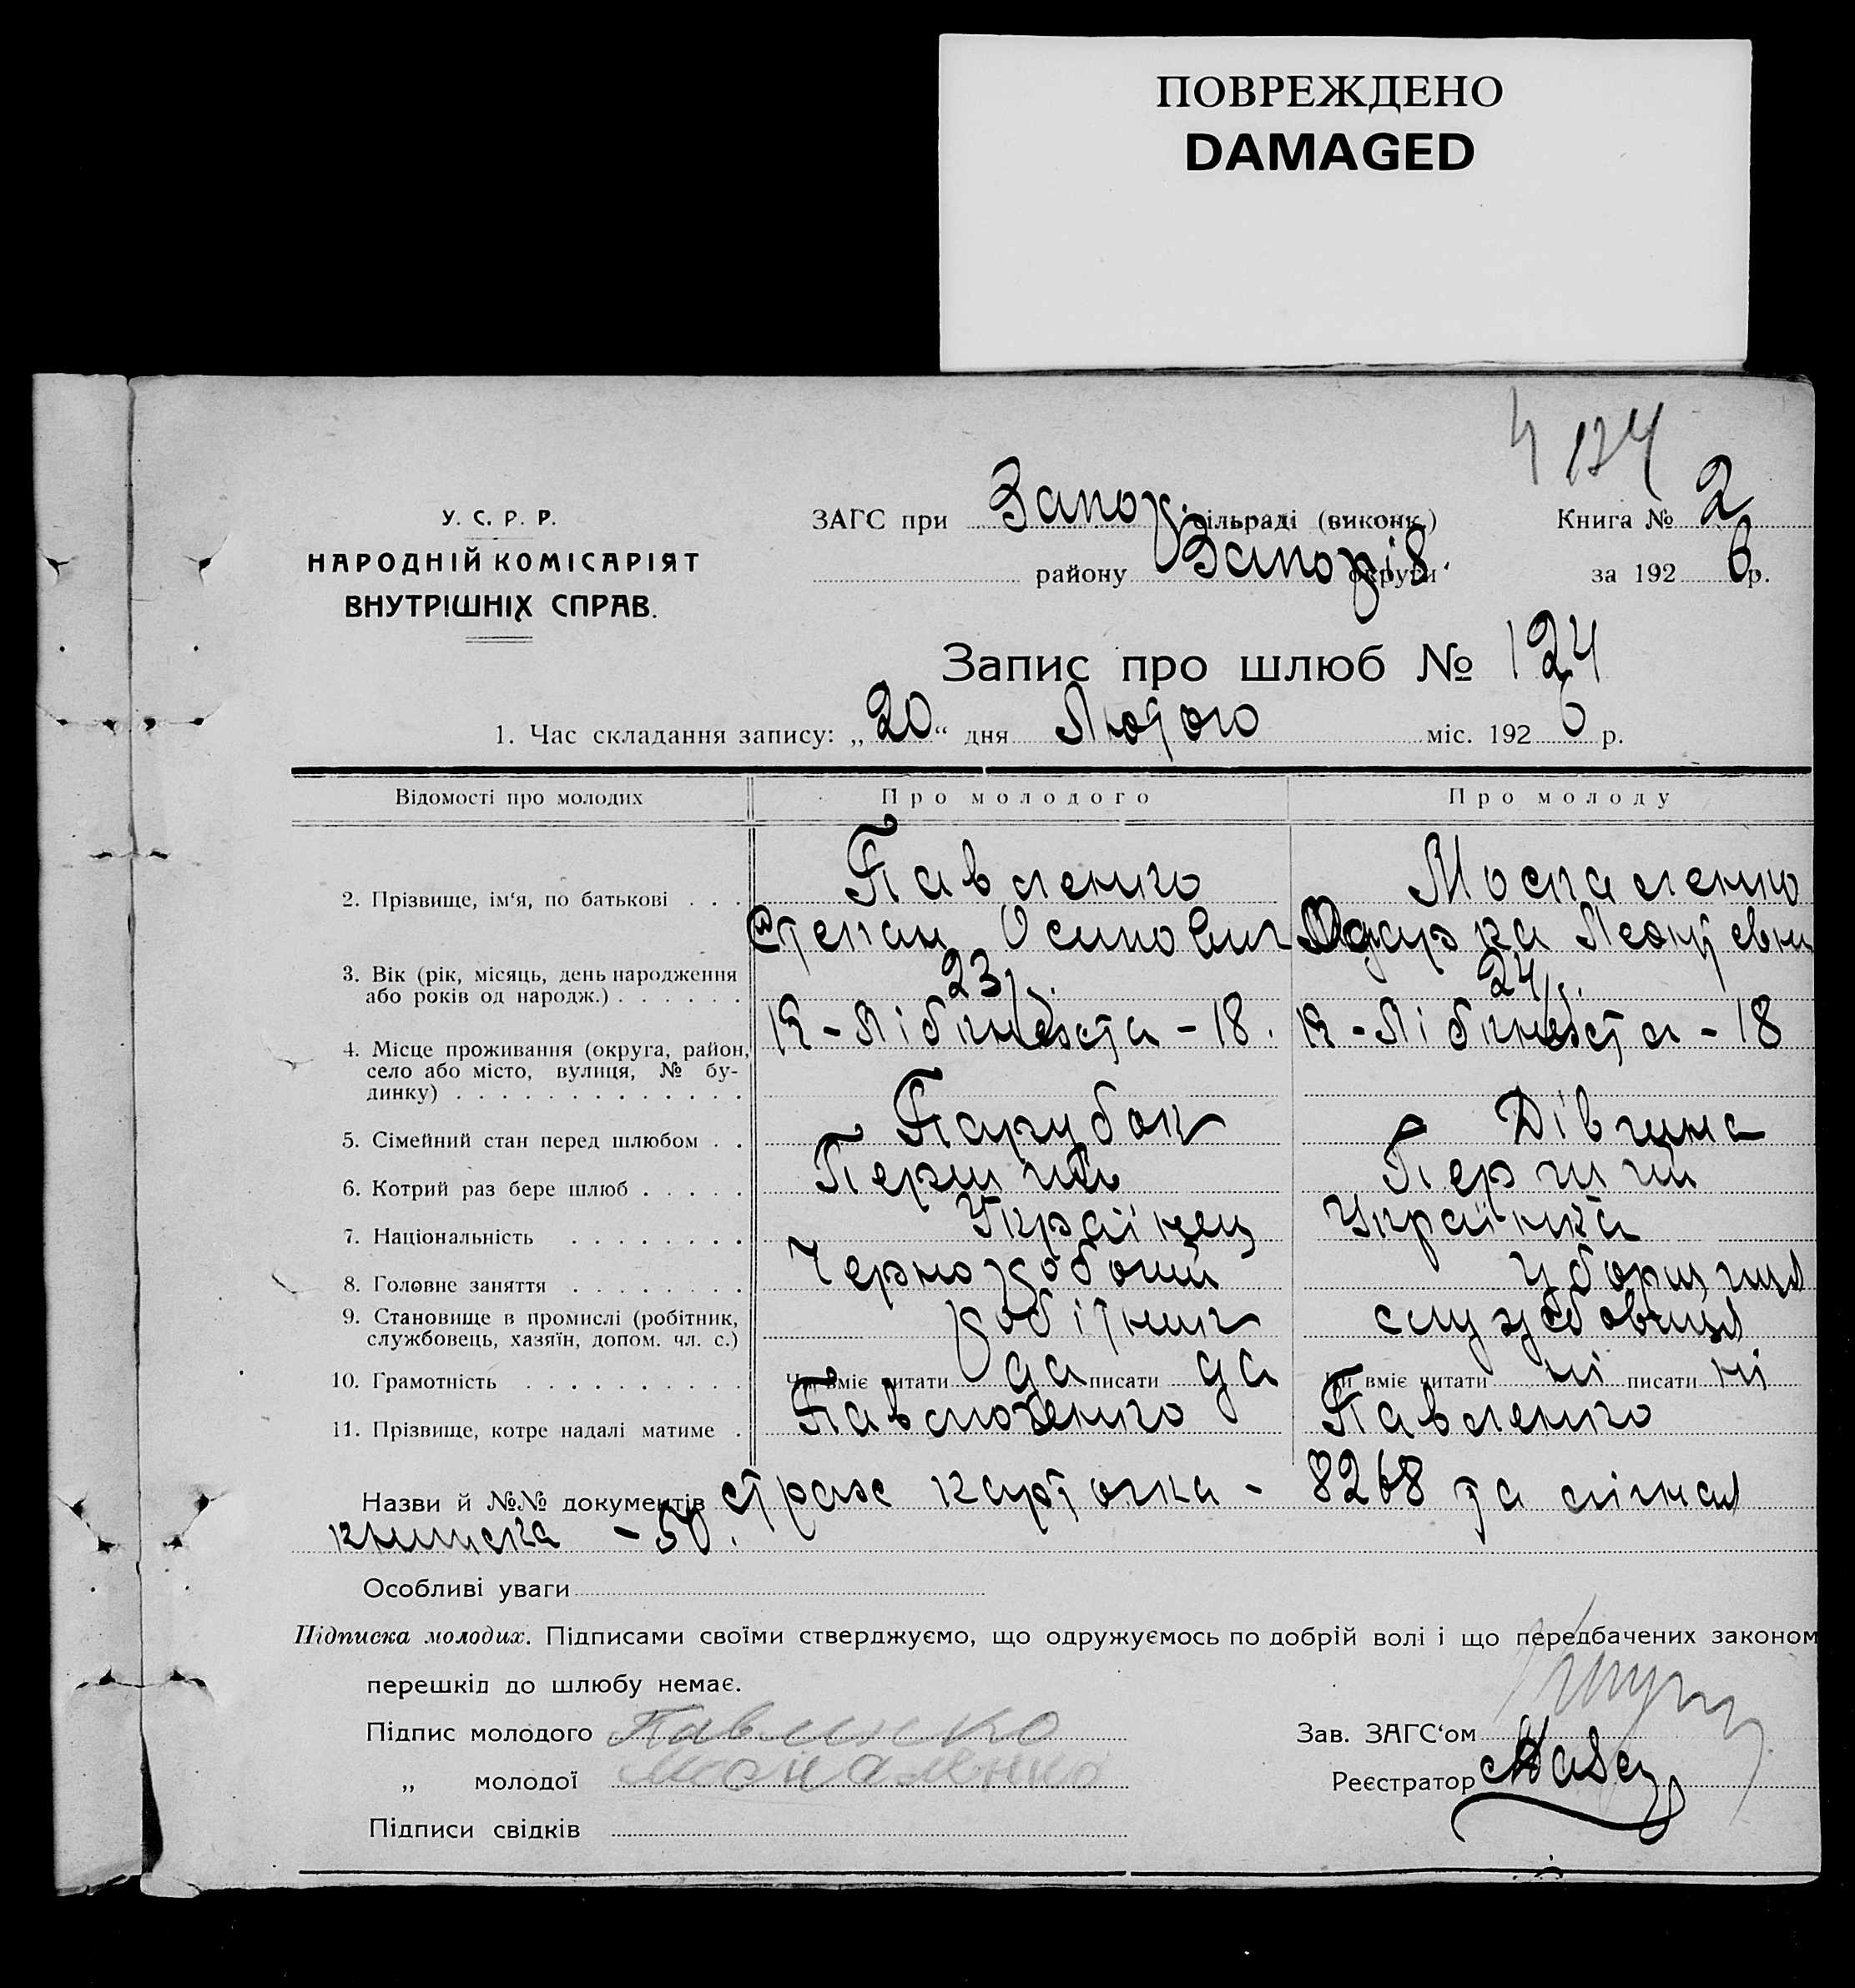 ПОВРЕЖДЕНО
DAMAGED
4 124
У. С. Р. Р.
НАРОДНІЙ КОМІСАРІЯТ
ВНУТРІШНІХ СПРАВ.
ЗАГС при Запор. сільраді (виконк.) Книга № 2
району Запоріз. округи за 1926 р.
Запис про шлюб № 124
1. Час складання запису: „20“ дня Лютого міс. 1926 р.
Відомості про молодих Про молодого Про молоду
2. Прізвище, ім‘я, по батькові . . . Павленко Москаленко
Степан Осипович Одарка Леонтьевна
3. Вік (рік, місяць, день народження або років од народж.) . . . . . . 23 р. 24 р.
4. Місце проживання (округа, район, село або місто, вулиця, № будинку) . . . . . . . . . . . . . К-Лібкнехта - 18. К-Лібкнехта - 18
5. Сімейний стан перед шлюбом . . Парубок Дівчина
6. Котрий раз бере шлюб . . . . . Перший Перший
7. Національність . . . . . . . . Українец Українка
8. Головне заняття . . . . . . . . Черноробочий уборщиця
9. Становище в промислі (робітник, службовець, хазяїн, допом. чл. с.) робітник службовиця
10. Грамотність . . . . . . . . . . Чи вміє читати да писати да Чи вміє читати ні писати ні
11. Прізвище, котре надалі матиме . Павленко Павленко
Назви й №№ документів страх карточка - 8268 та
книжка - 50.
Особливі уваги
Підписка молодих. Підписами своїми стверджуємо, що одружуємось по добрій волі і що передбачених законом
перешкід до шлюбу немає.
Підпис молодого Павленко Зав. ЗАГС‘ом
„ молодої Москаленко Реєстратор
Підписи свідків